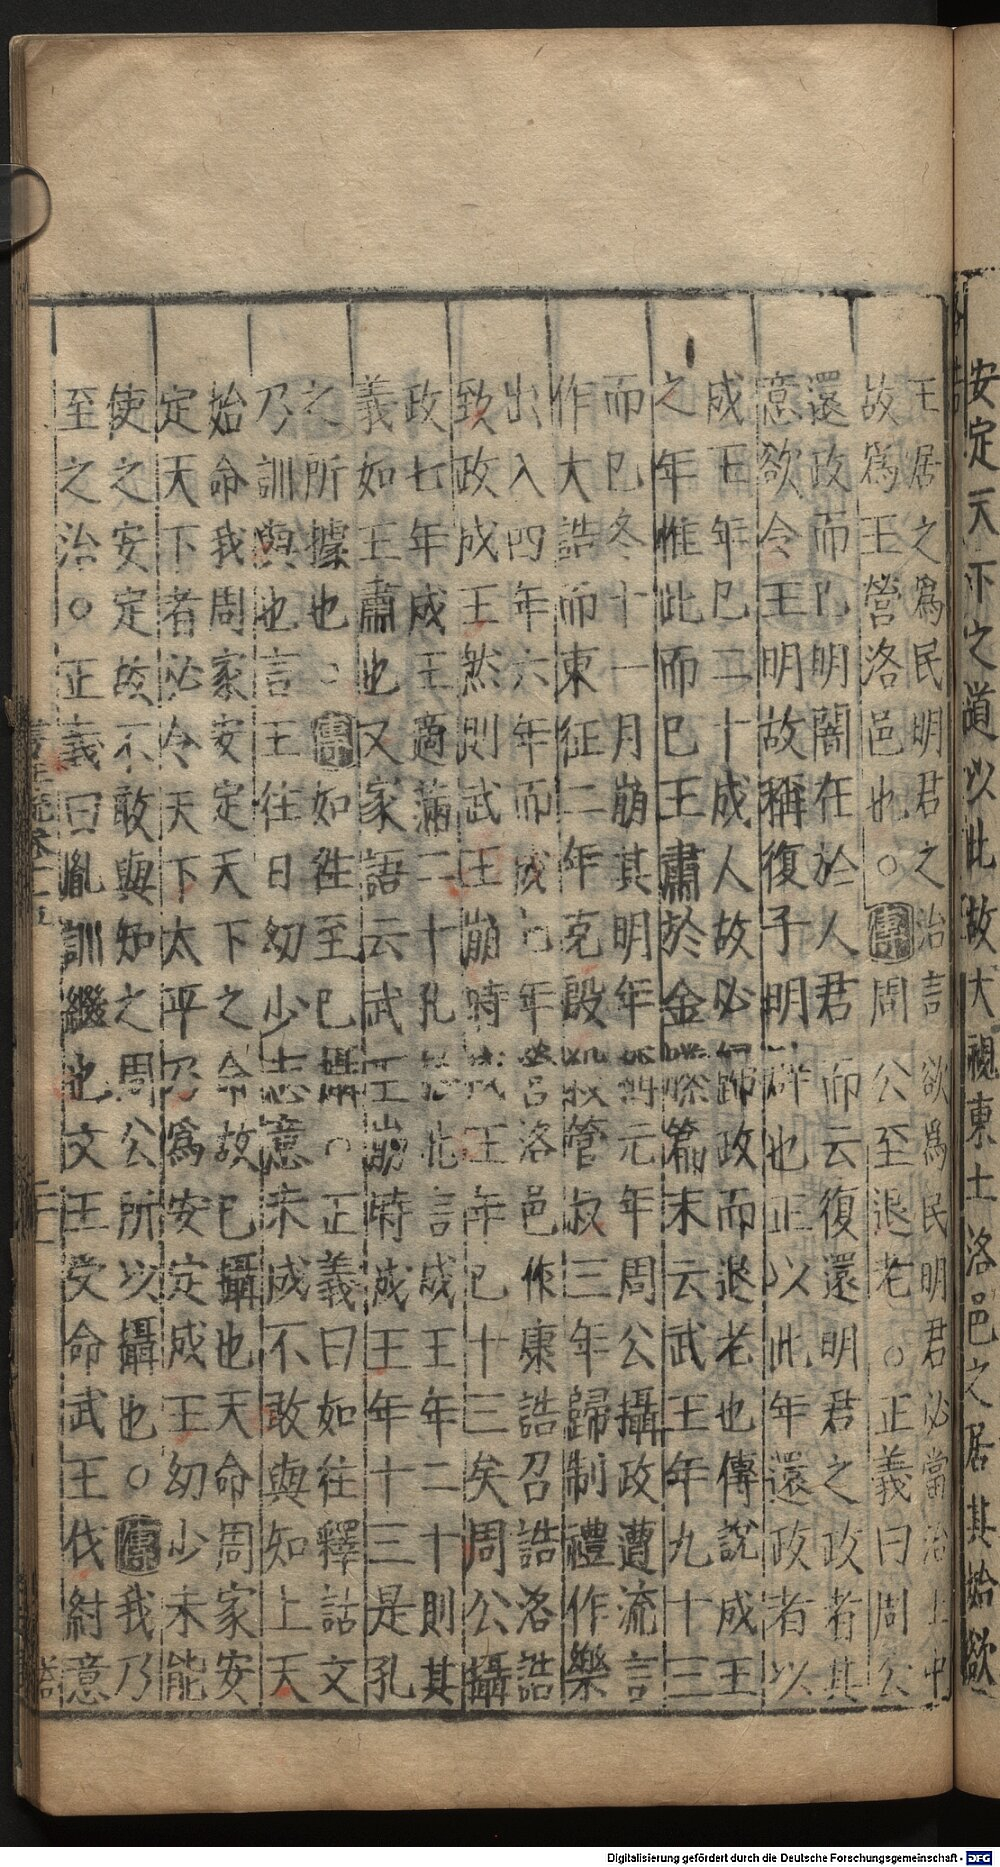 安定天下之道以此故大視東土洛邑之居其始欲
王居之爲民明君之治言欲爲民明君必當治土中
故爲王營洛邑也○疏周公至退老○正義曰周公
還政而已明闇在於人君而云復還明君之政者其
意欲令王明故稱復子明辟也正以此年還政者以
成王年已二十成人故必歸政而退老也傳說成王
之年惟此而已王肅於金縢篇末云武王年九十三
而已冬十一月崩其明年稱元年周公攝政遭流言
作大誥而東征二年克殷殺管叔三年歸制禮作樂
出入四年六年而成七年營洛邑作康誥召誥洛誥
致政成王然則武王崩時成王年已十三矣周公攝
政七年成王適滿二十孔於此言成王年二十則其
義如王肅也又家語云武王崩時成王年十三是孔
之所據也○疏如往至已攝○正義曰如往釋詁文
乃訓與也言王往日幼少志意未成不敢與知上天
始命我周家安定天下之命故已攝也天命周家安
定天下者必令天下太平乃爲安定成王幼少未能
使之安定故不敢與知之周公所以攝也○疏我乃
至之治○正義曰胤訓繼也文王受命武王伐紂意
Digitalisierung gefördert durch die Deutsche Forschungsgemeinschaft - DFG